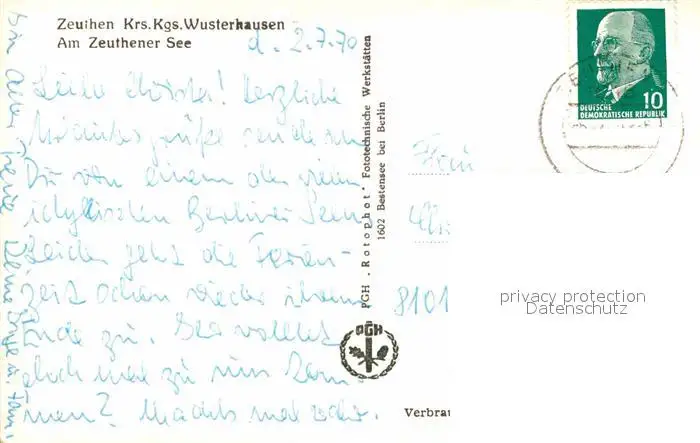 Zeuthen Krs.Kgs.Wusterhausen
Am Zeuthener See
d. 2.7.70
Liebe Christa! Herzliche
Urlaubsgrüße senden
Dir von einem der vielen
idyllischen Berliner Seen
Leider geht die Ferien-
zeit schon wieder ihrem
Ende zu.
doch mal zu uns kom-
men? Machts mal schön.
In alter Treue Deine
PGH „Rotophot" Fototechnische Werkstätten
1602 Bestensee bei Berlin
PGH
DEUTSCHE
DEMOKRATISCHE REPUBLIK
10
Frau
8101
privacy protection
Datenschutz
Verbrau